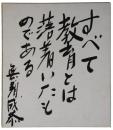 すべて
教育とは
落着いたも
のである